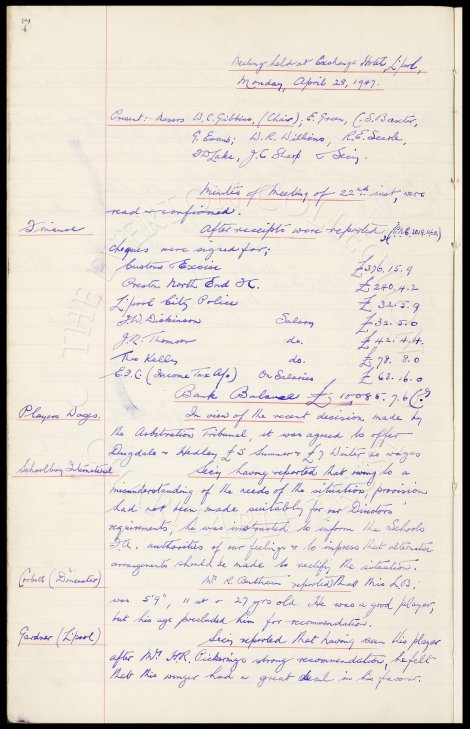 Meeting held at Exchange Hotel, L'pool,
Monday, April 28, 1947.
Present:- Messrs W.C. Gibbins, (Chair), E. Green, C.S. Baxter,
G. Evans; W.R. Williams, R.E. Searle,
J.C. Sharp & Secy.
Minutes of Meeting of 22nd inst, were
read & confirmed.
Finance
After receipts were reported
cheques were signed for;
Customs & Excise £376.15.9
Preston North End F.C. £240.4.2
L'pool City Police £32.5.9
Dickinson Salary £32.5.0
J.R. Thomson do. £42.4.4.
Theo Kelly do. £78.8.0
E.F.C (Income Tax A/c) On Salaries £68.16.0
Bank Balance £10,086.7.6
Players Wages.
In view of the recent decision made by
the Arbitration Tribunal, it was agreed to offer
Dugdale & Hedley £5 Summer & £7 Winter as wages
Schoolboy International
Secy having reported that owing to a
misunderstanding of the needs of the situation, provision
had not been made suitably for our Directors'
requirements, he was instructed to inform the Schools
F.A. authorities of our feelings & to impress that alternative
arrangements should be made to rectify the situation.
Corbett (Doncaster)
Mr R. reported that this R.B.
was 5'9", 11 st & 27 yrs old. He was a good player,
but his age precluded him for recommendation.
Gardner (L'pool)
Secy reported that having seen this player
after Mr H.R. Pickering's strong recommendation, he felt
that this winger had a great deal in his favour.